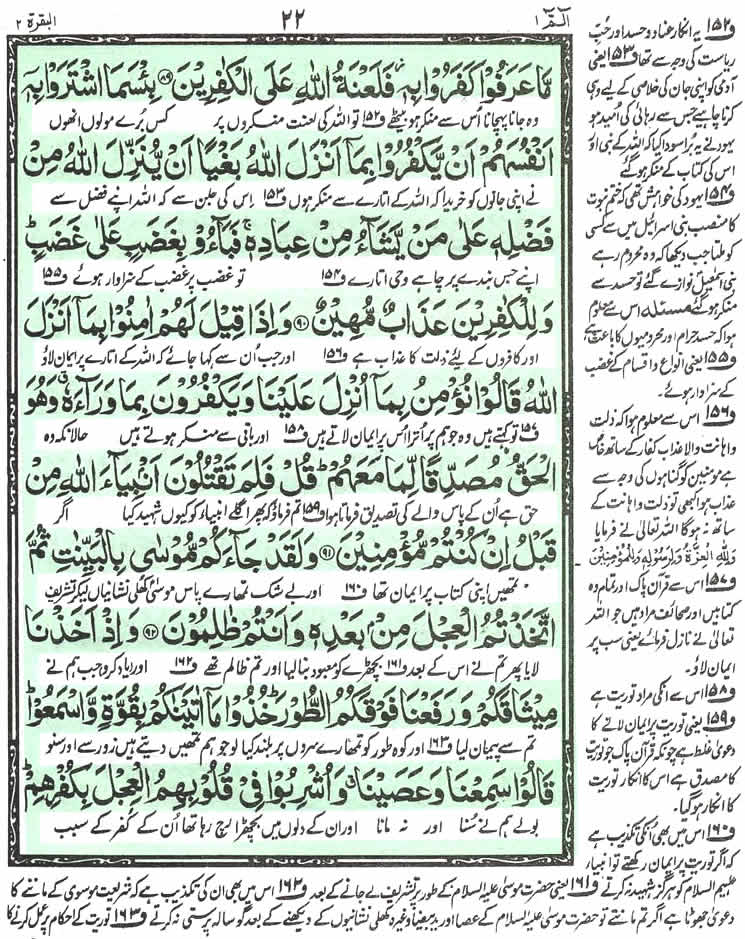 البقرة ٢
٢٢
الٓمّٓ ١
مَّا عَرَفُوْا كَفَرُوْا بِهٖ٘ فَلَعْنَةُ اللّٰهِ عَلَى الْكٰفِرِيْنَ ﴿۸۹﴾ بِئْسَمَا اشْتَرَوْا بِهٖۤ
وہ جانا پہچانا اُس سے منکر ہو بیٹھے ف۱۵۲ تو اللہ کی لعنت منکروں پر کس بُرے مولوں انھوں
اَنْفُسَهُمْ اَنْ يَّكْفُرُوْا بِمَاۤ اَنْزَلَ اللّٰهُ بَغْيًا اَنْ يُّنَزِّلَ اللّٰهُ مِنْ
نے اپنی جانوں کو خریدا کہ اللہ کے اتارے سے منکر ہوں ف۱۵۳ اس کی جلن سے کہ اللہ اپنے فضل سے
فَضْلِهٖ عَلٰى مَنْ يَّشَآءُ مِنْ عِبَادِهٖ١ۚ فَبَآءُوْ بِغَضَبٍ عَلٰى غَضَبٍ١ؕ
اپنے جس بندے پر چاہے وحی اتارے ف۱۵۴ تو غضب پر غضب کے سزاوار ہوئے ف۱۵۵
وَ لِلْكٰفِرِيْنَ عَذَابٌ مُّهِيْنٌ ﴿۹۰﴾ وَ اِذَا قِيْلَ لَهُمْ اٰمِنُوْا بِمَاۤ اَنْزَلَ
اور کافروں کے لیئے ذلت کا عذاب ہے ف۱۵۶ اور جب اُن سے کہا جائے کہ اللہ کے اتارے پر ایمان لاؤ
اللّٰهُ قَالُوْا نُؤْمِنُ بِمَاۤ اُنْزِلَ عَلَيْنَا وَ يَكْفُرُوْنَ بِمَا وَرَآءَهٗ١ۗ وَ هُوَ
ف۱۵۷ تو کہتے ہیں وہ جو ہم پر اُترا اس پر ایمان لاتے ہیں ف۱۵۸ اور باقی سے منکر ہوتے ہیں حالانکہ وہ
الْحَقُّ مُصَدِّقًا لِّمَا مَعَهُمْ١ؕ قُلْ فَلِمَ تَقْتُلُوْنَ اَنْۢبِيَآءَ اللّٰهِ مِنْ
حق ہے اُن کے پاس والے کی تصدیق فرماتا ہوا ف۱۵۹ تم فرماؤ کہ پھر اگلے انبیاء کو کیوں شہید کیا اگر
قَبْلُ اِنْ كُنْتُمْ مُّؤْمِنِيْنَ ﴿۹۱﴾ وَ لَقَدْ جَآءَكُمْ مُّوْسٰى بِالْبَيِّنٰتِ ثُمَّ
تمھیں اپنی کتاب پر ایمان تھا ف۱۶۰ اور بے شک تمھارے پاس موسیٰ کھلی نشانیاں لیکر تشریف
اتَّخَذْتُمُ الْعِجْلَ مِنْۢ بَعْدِهٖ وَ اَنْتُمْ ظٰلِمُوْنَ ﴿۹۲﴾ وَ اِذْ اَخَذْنَا
لایا پھر تم نے اس کے بعد ف۱۶۱ بچھڑے کو معبود بنا لیا اور تم ظالم تھے ف۱۶۲ اور یاد کرو جب ہم نے
مِيْثَاقَكُمْ وَ رَفَعْنَا فَوْقَكُمُ الطُّوْرَ١ؕ خُذُوْا مَاۤ اٰتَيْنٰكُمْ بِقُوَّةٍ وَّ اسْمَعُوْا١ؕ
تم سے پیمان لیا ف۱۶۳ اور کوہ طور کو تمھارے سروں پر بلند کیا لو جو ہم تمھیں دیتے ہیں زور سے اور سنو
قَالُوْا سَمِعْنَا وَ عَصَيْنَا١ۗ وَ اُشْرِبُوْا فِيْ قُلُوْبِهِمُ الْعِجْلَ بِكُفْرِهِمْ١ؕ
بولے ہم نے سُنا اور نہ مانا اور ان کے دلوں میں بچھڑا رچ رہا تھا اُن کے کُفر کے سبب
ف۱۵۲ یہ انکار عناد و حسد اور حُبّ
ریاست کی وجہ سے تھا ف۱۵۳ یعنی
آدمی کو اپنی جان کی خلاصی کے لیے وہی
کرنا چاہیے جس سے رہائی کی امید ہو
یہود نے یہ برا سودا کیا کہ اللہ کے نبی اور
اس کی کتاب کے منکر ہو گئے
ف۱۵۴ یہود کی خواہش تھی کہ ختم نبوت
کا منصب بنی اسرائیل میں سے کسی
کو ملتا جب دیکھا کہ وہ محروم رہے
بنی اسمٰعیل نوازے گئے تو حسد سے
منکر ہو گئے مسئلہ اس سے معلوم
ہوا کہ حسد حرام اور محرومیوں کا باعث ہے
ف۱۵۵ یعنی انواع و اقسام کے غضب
کے سزاوار ہوئے۔
ف۱۵۶ اس سے معلوم ہوا کہ ذلت
و اہانت والا عذاب کفار کے ساتھ خاص
ہے مومنین کو گناہوں کی وجہ سے
عذاب ہوا بھی تو ذلت و اہانت کے
ساتھ نہ ہوگا اللہ تعالیٰ نے فرمایا
وَلِلّٰهِ الْعِزَّةُ وَلِرَسُوْلِهٖ وَلِلْمُؤْمِنِيْنَ
ف۱۵۷ اس سے قرآن پاک اور تمام وہ
کتابیں اور صحائف مراد ہیں جو اللہ
تعالیٰ نے نازل فرمائے یعنی سب پر
ایمان لاؤ۔
ف۱۵۸ اس سے انکی مراد توریت ہے
ف۱۵۹ یعنی توریت پر ایمان لانے کا
دعویٰ غلط ہے چونکہ قرآن پاک جو توریت
کا مصدق ہے اس کا انکار توریت
کا انکار ہو گیا۔
ف۱۶۰ اس میں بھی اُنکی تکذیب ہے
کہ اگر توریت پر ایمان رکھتے تو انبیاء
علیہم السلام کو ہرگز شہید نہ کرتے ف۱۶۱ یعنی حضرت موسیٰ علیہ السلام کے طور پر تشریف لے جانے کے بعد ف۱۶۲ اس میں بھی ان کی تکذیب ہے کہ شریعت موسوی کے ماننے کا
دعویٰ جھوٹا ہے اگر تم مانتے تو حضرت موسیٰ علیہ السلام کے عصا اور ید بیضا وغیرہ کھلی نشانیوں کے دیکھنے کے بعد گوسالہ پرستی نہ کرتے ف۱۶۳ توریت کے احکام پر عمل کرنے کا